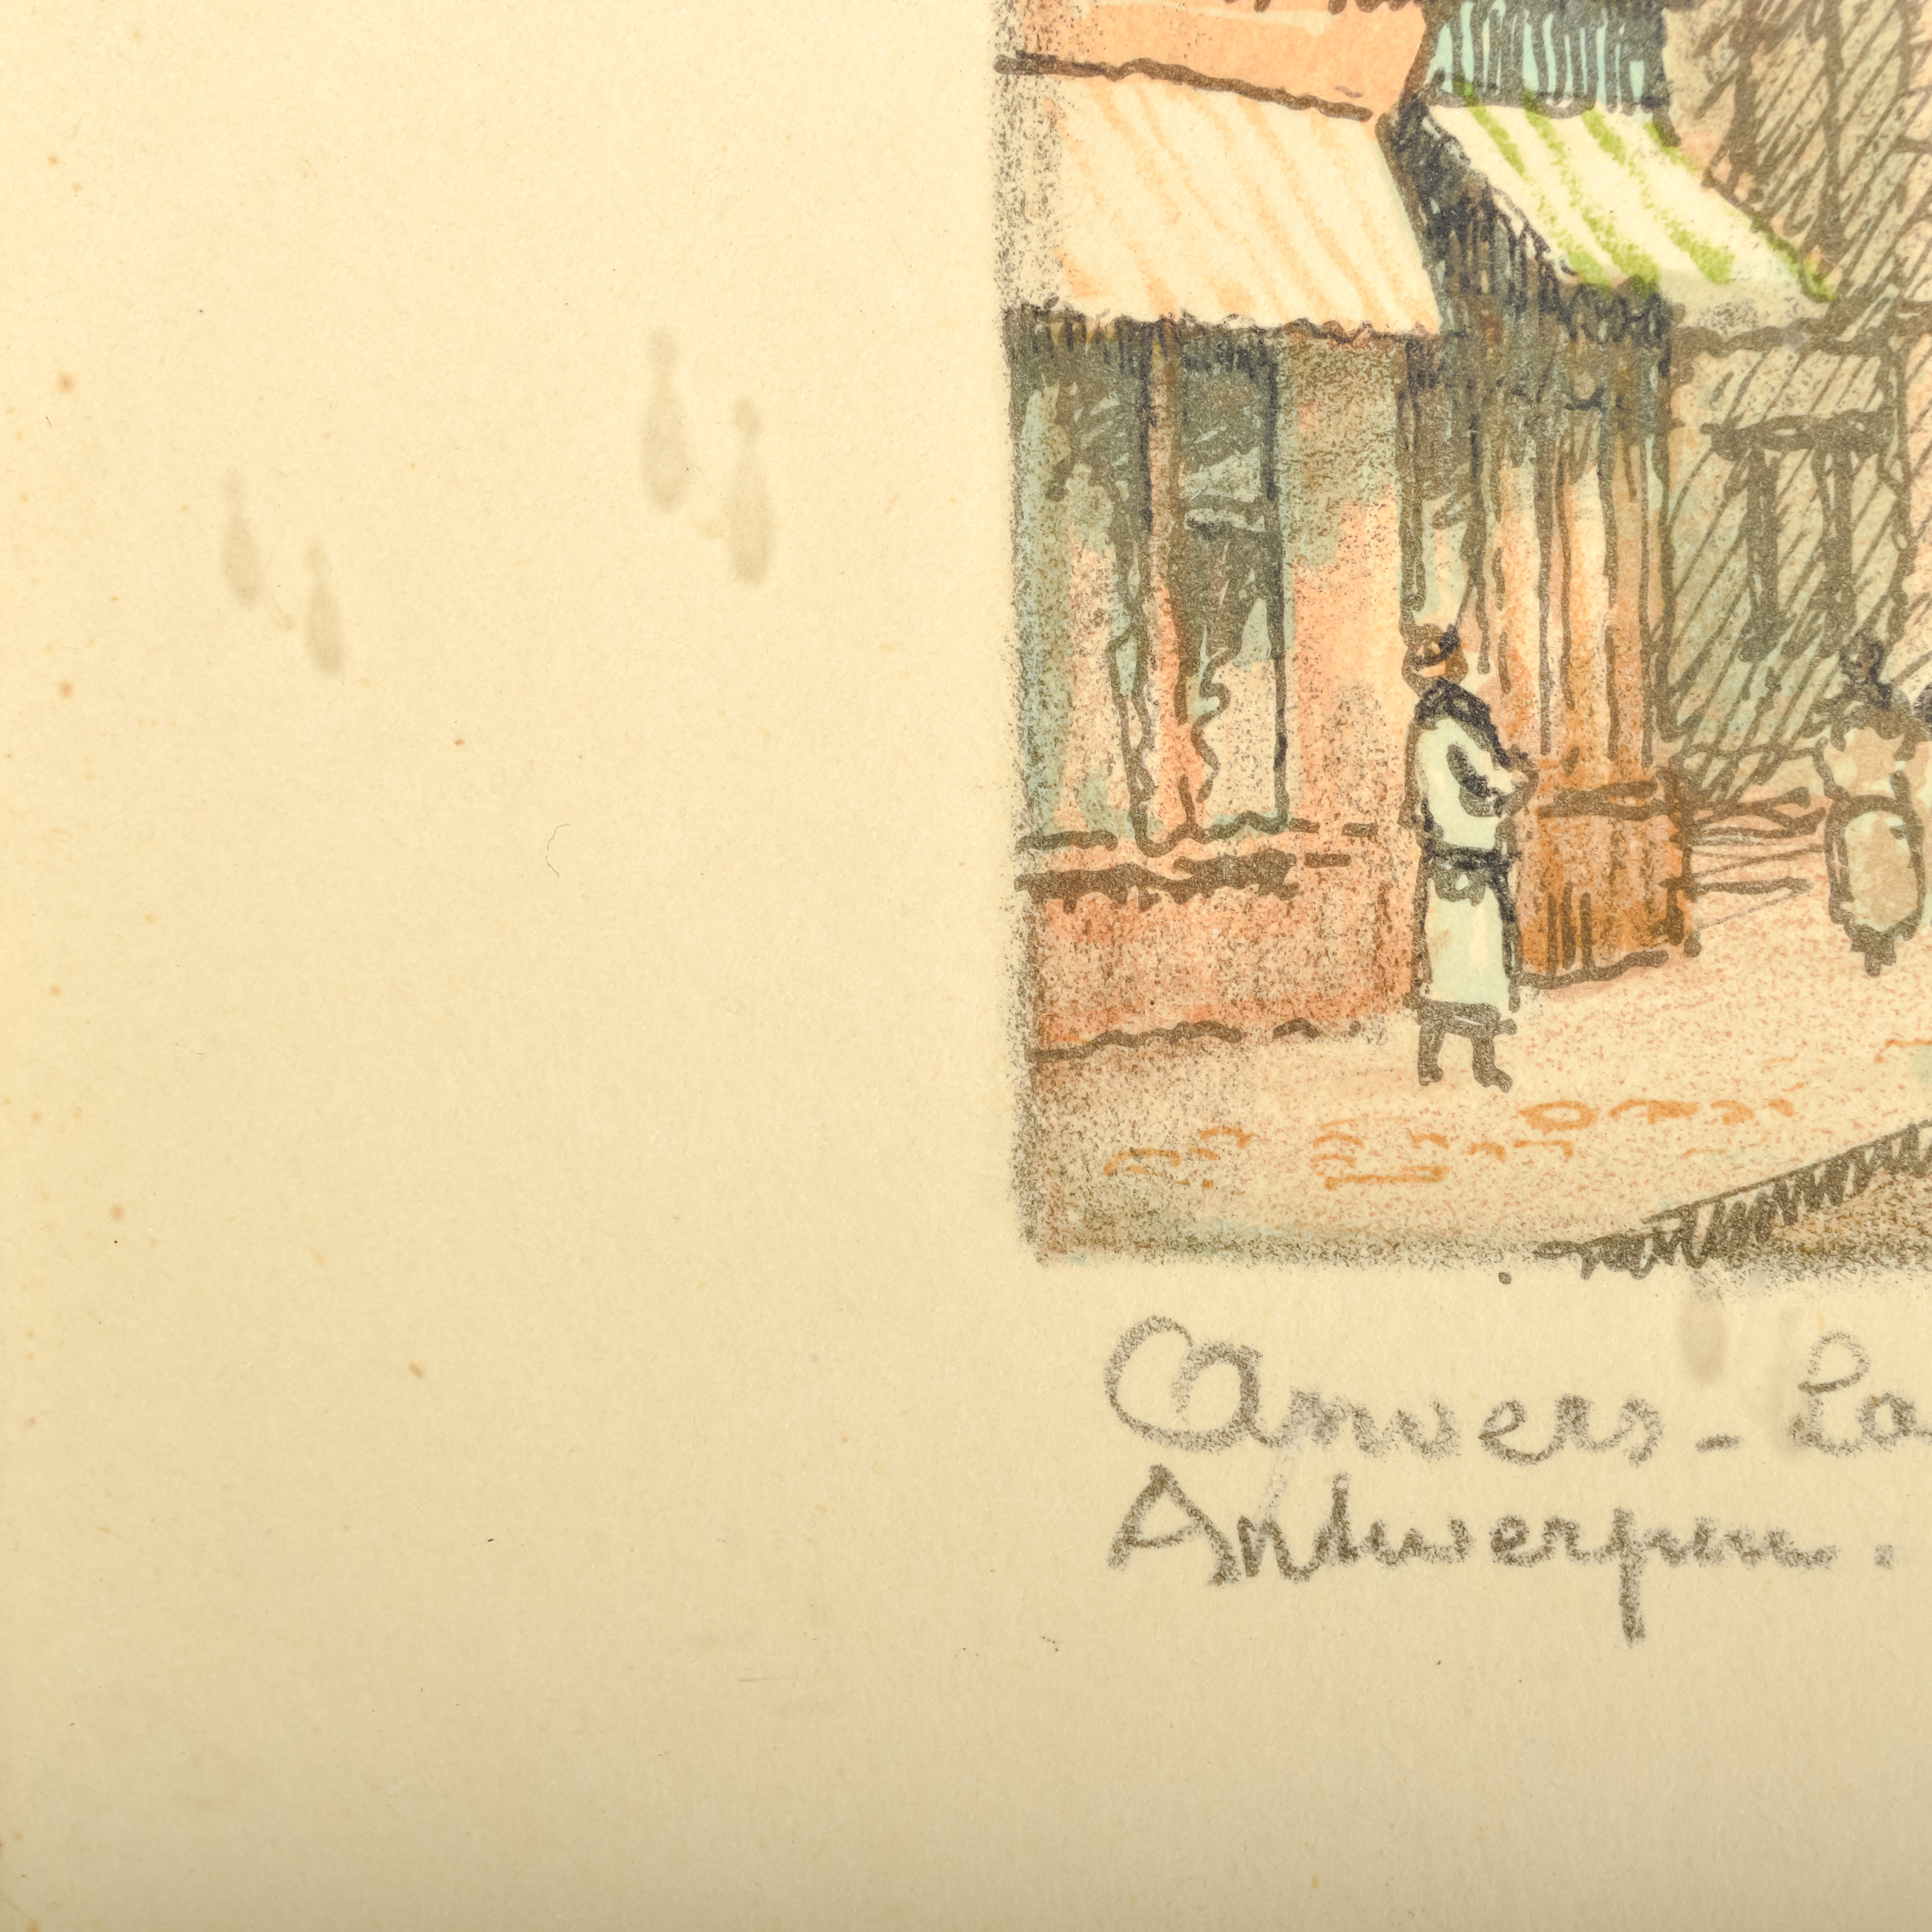 Anvers - La
Antwerpen.